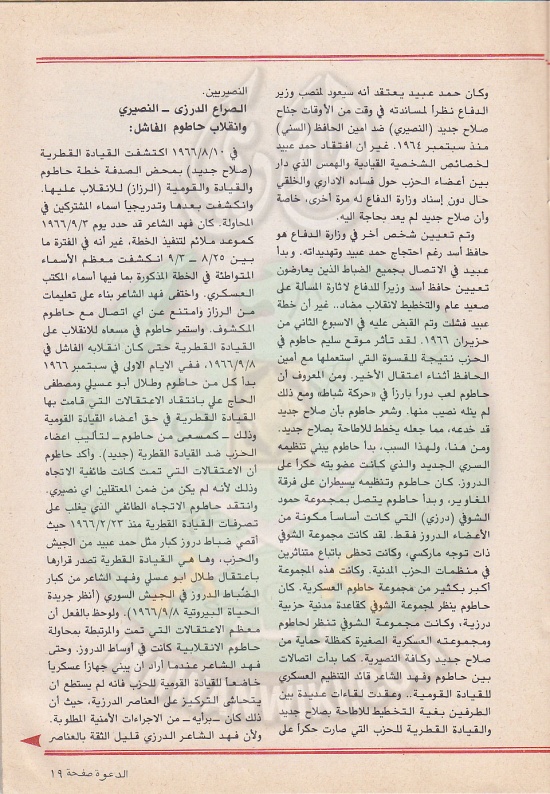 وكان حمد عبيد يعتقد أنه سيعود لمنصب وزير
الدفاع نظراً لمساندته في وقت من الأوقات جناح
صلاح جديد (النصيري) ضد امين الحافظ (السني)
منذ سبتمبر ١٩٦٤. غير ان افتقاد حمد عبيد
لخصائص الشخصية القيادية والهمس الذي دار
بين أعضاء الحزب حول فساده الاداري والخلقي
حال دون إسناد وزارة الدفاع له مرة أخرى، خاصة
وأن صلاح جديد لم يعد بحاجة اليه.
وتم تعيين شخص آخر في وزارة الدفاع هو
حافظ أسد رغم احتجاج حمد عبيد وتهديداته. وبدأ
عبيد في الاتصال بجميع الضباط الذين يعارضون
تعيين حافظ أسد وزيراً للدفاع لاثارة المسألة على
صعيد عام والتخطيط لانقلاب مضاد.. غير أن خطة
عبيد فشلت وتم القبض عليه في الاسبوع الثاني من
حزيران ١٩٦٦. لقد تأثر موقع سليم حاطوم في
الحزب نتيجة للقسوة التي استعملها مع أمين
الحافظ أثناء اعتقال الأخير. ومن المعروف أن
حاطوم لعب دوراً بارزاً في «حركة شباط» ومع ذلك
لم ينله نصيب منها. وشعر حاطوم بأن صلاح جديد
قد خدعه، مما جعله يخطط للإطاحة بصلاح جديد.
ومن هنا، ولهذا السبب، بدأ حاطوم يبني تنظيمه
السري الجديد والذي كانت عضويته حكراً على
الدروز. كان حاطوم وتنظيمه يسيطران على فرقة
المغاوير، وبدأ حاطوم يتصل بمجموعة حمود
الشوفي (درزي) التي كانت أساساً مكونة من
الأعضاء الدروز فقط. لقد كانت مجموعة الشوفي
ذات توجه ماركسي، وكانت تحظى باتباع متناثرين
في منظمات الحزب المدنية. وكانت هذه المجموعة
أكبر بكثير من مجموعة حاطوم العسكرية. كان
حاطوم ينظر لمجموعة الشوفي كقاعدة مدنية حزبية
درزية، وكانت مجموعة الشوفي تنظر لحاطوم
ومجموعته العسكرية الصغيرة كمظلة حماية من
صلاح جديد وكافة النصيرية. كما بدأت اتصالات
بين حاطوم وفهد الشاعر قائد التنظيم العسكري
للقيادة القومية.. وعقدت لقاءات عديدة بين
الطرفين بغية التخطيط للاطاحة بصلاح جديد
والقيادة القطرية للحزب التي صارت حكراً على
النصيريين.
الصراع الدرزى ــ النصيري
وانقلاب حاطوم الفاشل:
في ١٩٦٦/٨/١٠ اكتشفت القيادة القطرية
(صلاح جديد) بمحض الصدفة خطة حاطوم
والقيادة والقومية (الرزاز) للانقلاب عليها.
وانكشفت بعدها وتدريجيا اسماء المشتركين في
المحاولة. كان فهد الشاعر قد حدد يوم ١٩٦٦/٩/٣
كموعد ملائم لتنفيذ الخطة، غير أنه في الفترة ما
بين ٨/٢٥ ــ ٩/٣ انكشفت معظم الأسماء
المتواطئة في الخطة المذكورة بما فيها أسماء المكتب
العسكري. واختفى فهد الشاعر بناء على تعليمات
من الرزاز وامتنع عن اي اتصال مع حاطوم
المكشوف. واستمر حاطوم في مسعاه للانقلاب على
القيادة القطرية حتى كان انقلابه الفاشل في
١٩٦٦/٩/٨، ففي الايام الاولى في سبتمبر ١٩٦٦
بدأ كل من حاطوم وطلال أبو عسيلي ومصطفى
الحاج علي بانتقاد الاعتقالات التي قامت بها
القيادة القطرية في حق أعضاء القيادة القومية
وذلك ــ كمسعى من حاطوم ــ لتأليب اعضاء
الحزب ضد القيادة القطرية (جديد). وأكد حاطوم
أن الاعتقالات التي تمت كانت طائفية الاتجاه
وذلك لأنه لم يكن من ضمن المعتقلين اي نصيري.
وانتقد حاطوم الاتجاه الطائفي الذي يغلب على
تصرفات القيادة القطرية منذ ١٩٦٦/٢/٢٣ حيث
أقصي ضباط دروز كبار مثل حمد عبيد من الجيش
والحزب، وها هي القيادة القطرية تصدر قرارها
باعتقال طلال ابو عسلي وفهد الشاعر من كبار
الضباط الدروز في الجيش السوري (أنظر جريدة
الحياة البيروتية ١٩٦٦/٩/٨). ولوحظ بالفعل أن
معظم الاعتقالات التي تمت والمرتبطة بمحاولة
حاطوم الانقلابية كانت في أوساط الدروز. وحتى
فهد الشاعر عندما أراد ان يبني جهازاً عسكرياً
خاضعاً للقيادة القومية للحزب فأنه لم يستطع ان
يتحاشى التركيز على العناصر الدرزية، حيث أن
ذلك كان ــ برأيه ــ من الاجراءات الأمنية المطلوبة.
ولأن فهد الشاعر الدرزي قليل الثقة بالعناصر
الدعوة صفحة ١٩